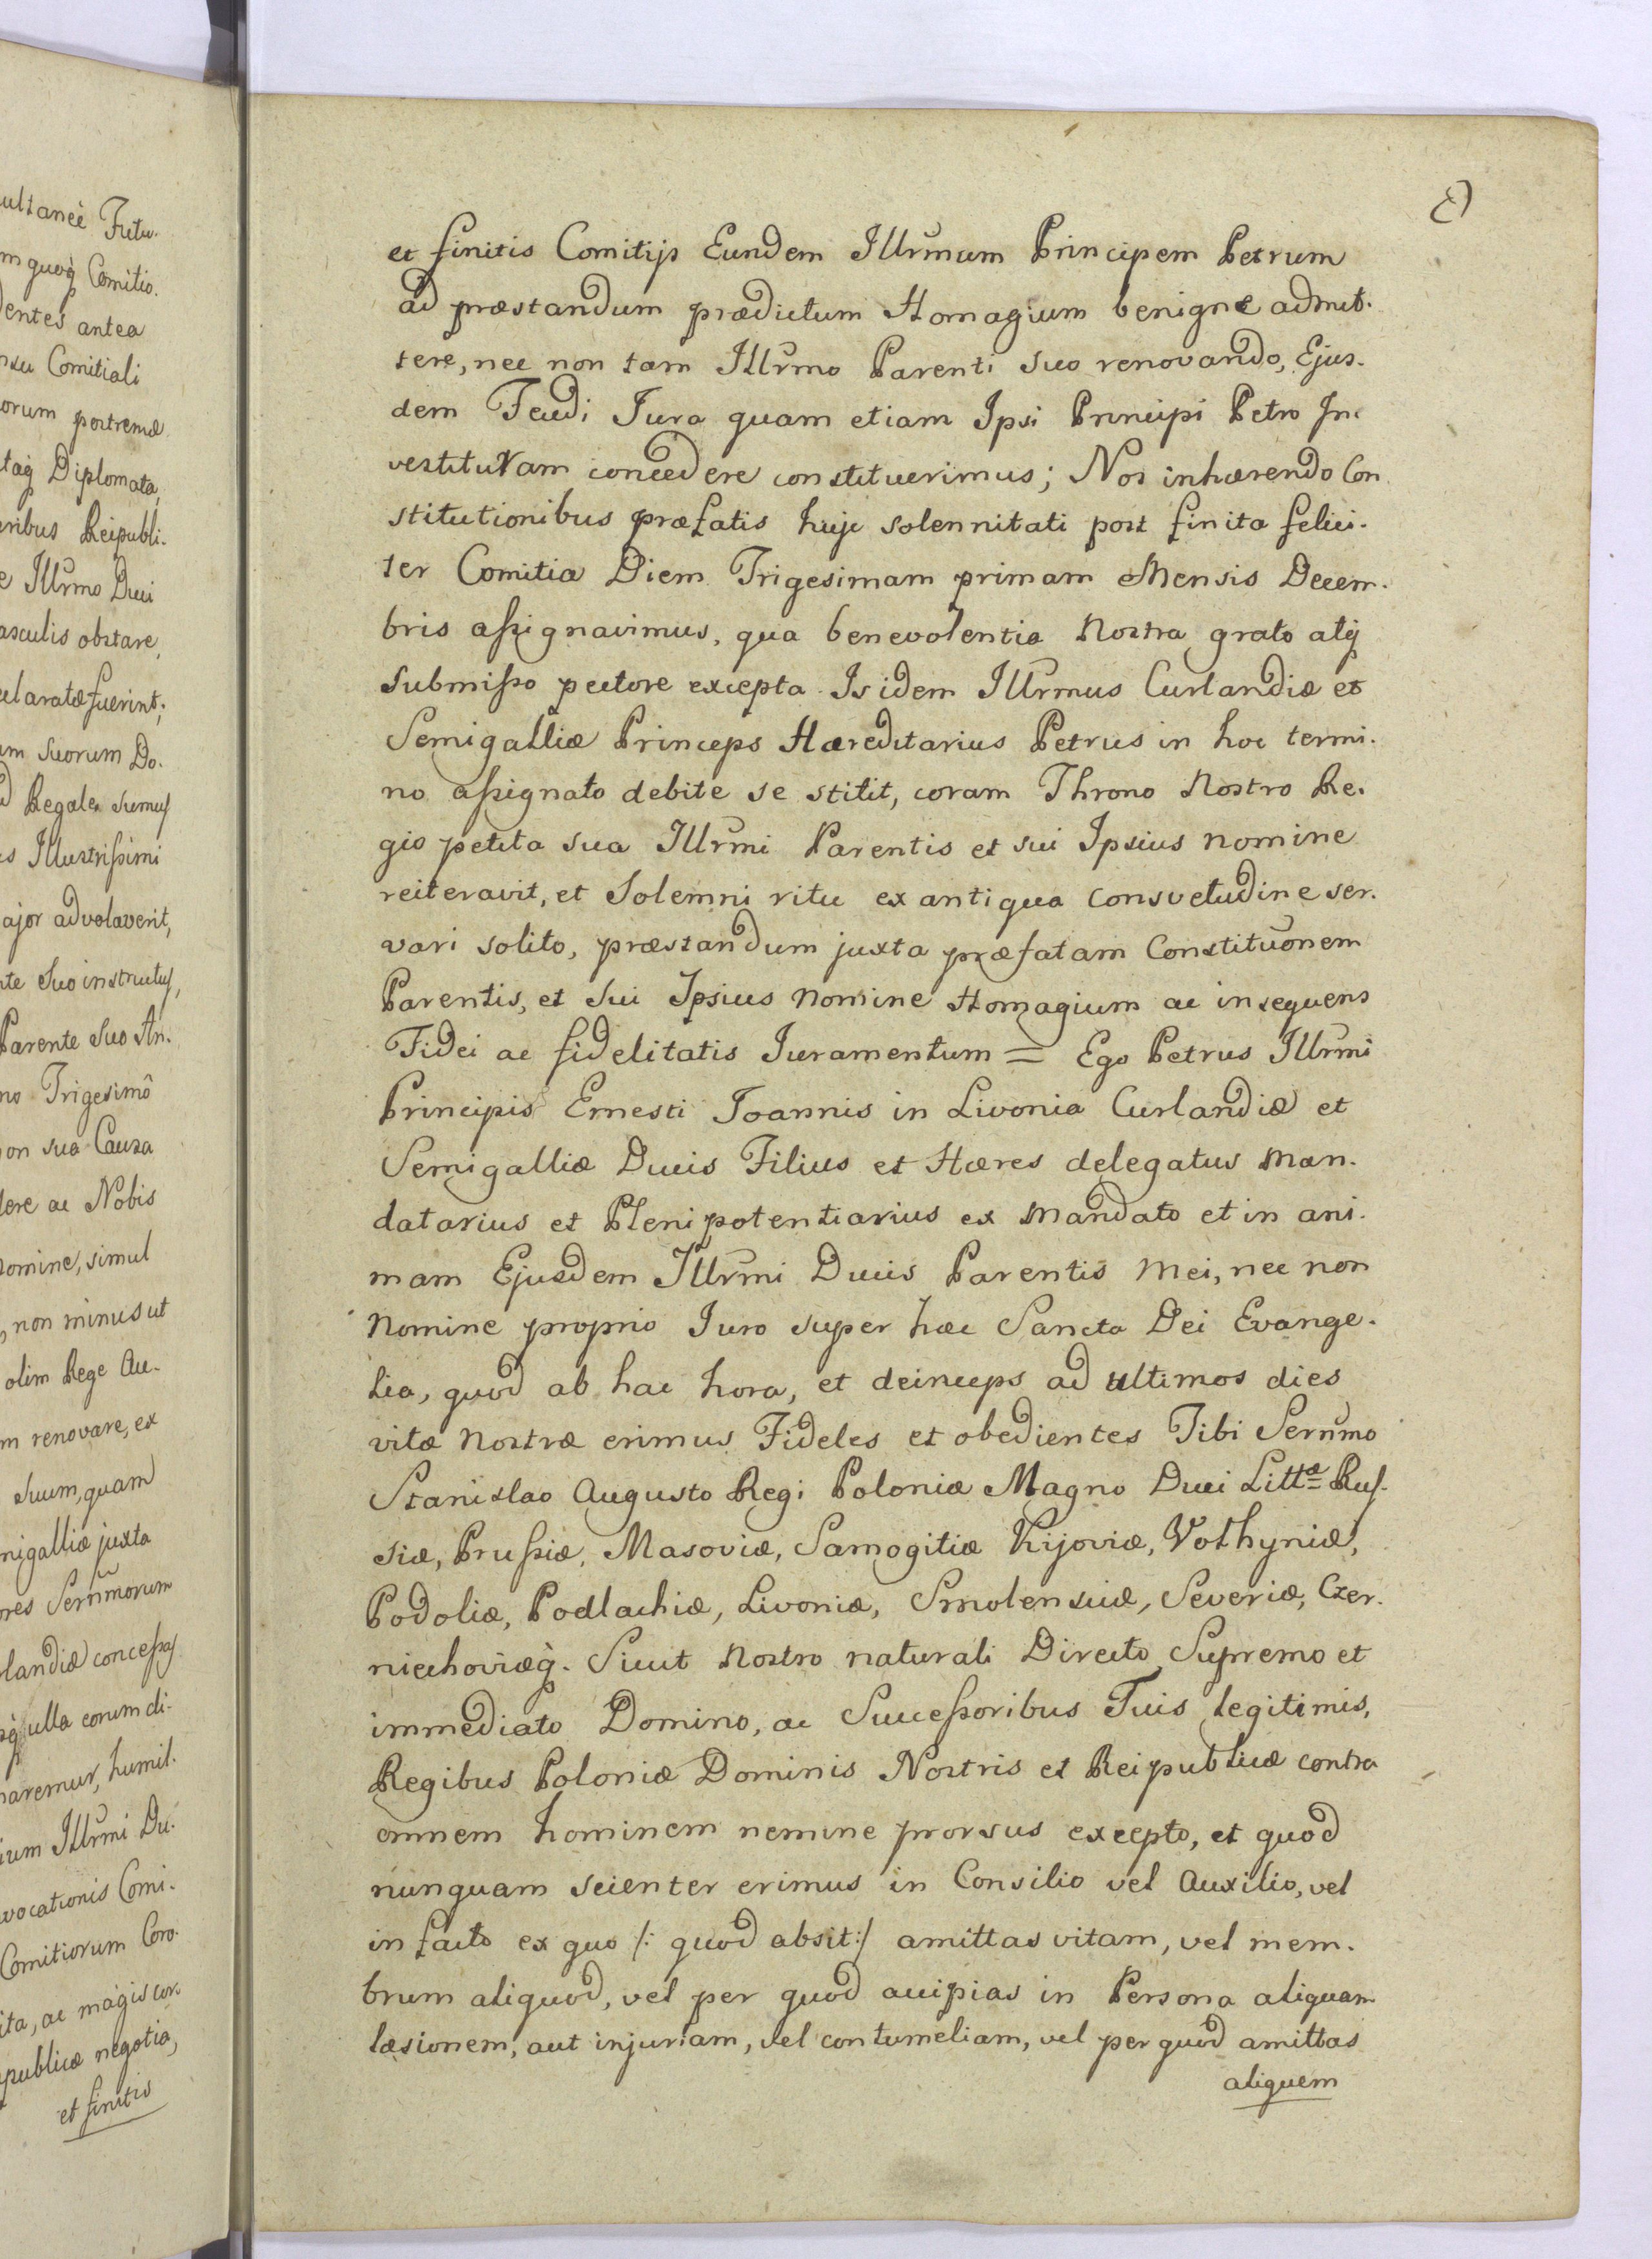 ultanee Futu.
m quoq Comitio.
dentes antea
nsu Comitiali
orum postremæ
taq Diplomata,
eribus Reipubli.
e Illrmo Duci
asculis obstare,
claratæ fuerint;
um suorum Do.
d Regales sumus
is Illustrissimi
ajor advolaverit,
nte suo instructus,
Parente suo An.
no Trigesimô
on sua Causa
dere ac Nobis
nomine, simul
, non minus ut
olim Rege Au.
m renovare, ex
suum, quam
migalliæ juxta
ores Sernmorum
rlandiæ concessas
sq ulla eorum di.
naremur, humil.
ium Illrmi Du.
vocationis Comi.
Comitiorum Coro.
ita, ac magis cor.
publicæ negotia,
et finitis
et finitis Comitijs Eundem Illrmum Principem Petrum
ad præstandum prædictum Homagium benigne admit.
tere, nec non tam Illrmo Parenti suo renovando, Ejus.
dem Feudi Jura quam etiam Ipsi Principi Petro In.
vestituram concedere constituerimus; Nos inhærendo Con
stitutionibus præfatis huic solennitati post finita felici.
ter Comitia Diem Trigesimam primam Mensis Decem.
bris assignavimus, qua benevolentia Nostra grato atq
submisso pectore excepta. Is idem Illrmus Curlandiæ et
Semigalliæ Princeps Hæreditarius Petrus in hoc termi.
no assignato debite se stitit, coram Throno Nostro Re.
gio petita sua Illrmi Parentis et sui Ipsius nomine
reiteravit, et Solemni ritu ex antiqua consvetudine ser.
vari solito, præstandum juxta præfatam Constituonem
Parentis, et sui Ipsius Nomine Homagium ac insequens
Fidei ac fidelitatis Juramentum = Ego Petrus Illrmi
Principis Ernesti Joannis in Livonia Curlandiæ et
Semigalliæ Ducis Filius et Hæres delegatus Man.
datarius et Plenipotentiarius ex Mandato et in ani.
mam Ejusdem Illrmi Ducis Parentis Mei, nec non
Nomine proprio Juro super hæc Sancta Dei Evange.
lia, quod ab hac hora, et deinceps ad ultimos dies
vitæ Nostræ erimus Fideles et obedientes Tibi Sernmo
Stanislao Augusto Regi Poloniæ Magno Duci Littæ Rus.
siæ, Prussiæ, Masoviæ, Samogitiæ Kijoviæ, Volhyniæ,
Podoliæ, Podlachiæ, Livoniæ, Smolensciæ, Severiæ, Czer.
niechoviæq. Sicut Nostro naturali Directo Supremo et
immediato Domino, ac Successoribus Tuis legitimis,
Regibus Poloniæ Dominis Nostris et Reipublicæ contra
omnem hominem nemine prorsus excepto, et quod
nunquam scienter erimus in Consilio vel Auxilio, vel
in facto ex quo /: quod absit :/ amittas vitam, vel mem.
brum aliquod, vel per quod accipias in Persona aliquam
læsionem, aut injuriam, vel contumeliam, vel per quod amittas
aliquem